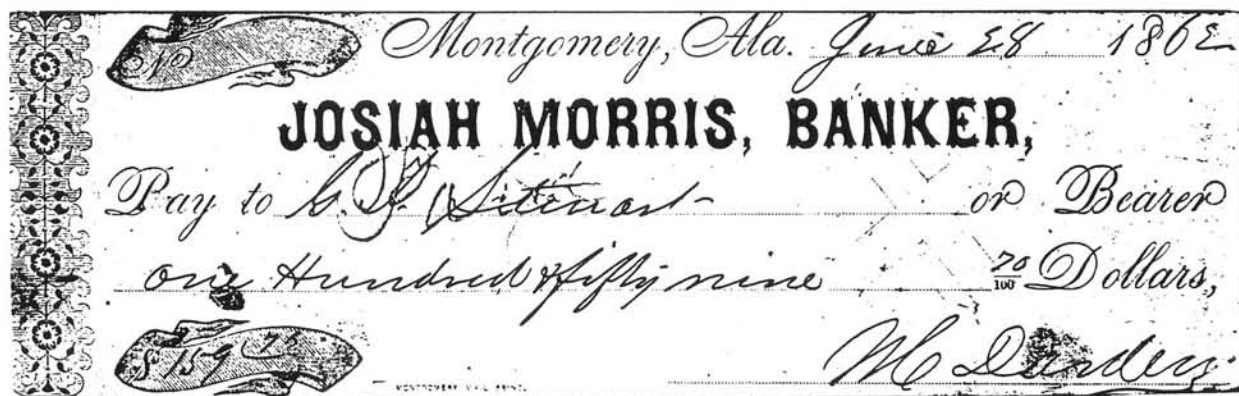 No Montgomery, Ala. June 28 1862
JOSIAH MORRIS, BANKER,
Pay to G. F. Stewart or Bearer
one Hundred & fifty nine 70/100 Dollars,
$ 159 70
MONTGOMERY MAIL PRINT.